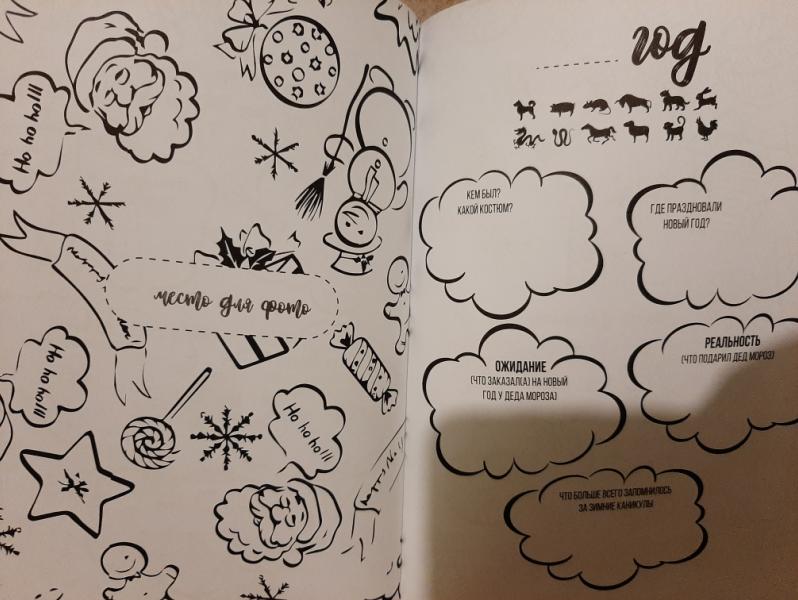 Ho ho ho!!!
место для фото
Ho ho ho!!!
Ho ho ho!!!
год
КЕМ БЫЛ?
КАКОЙ КОСТЮМ?
ГДЕ ПРАЗДНОВАЛИ
НОВЫЙ ГОД?
ОЖИДАНИЕ
(ЧТО ЗАКАЗАЛ(А) НА НОВЫЙ
ГОД У ДЕДА МОРОЗА)
РЕАЛЬНОСТЬ
(ЧТО ПОДАРИЛ ДЕД МОРОЗ)
ЧТО БОЛЬШЕ ВСЕГО ЗАПОМНИЛОСЬ
ЗА ЗИМНИЕ КАНИКУЛЫ